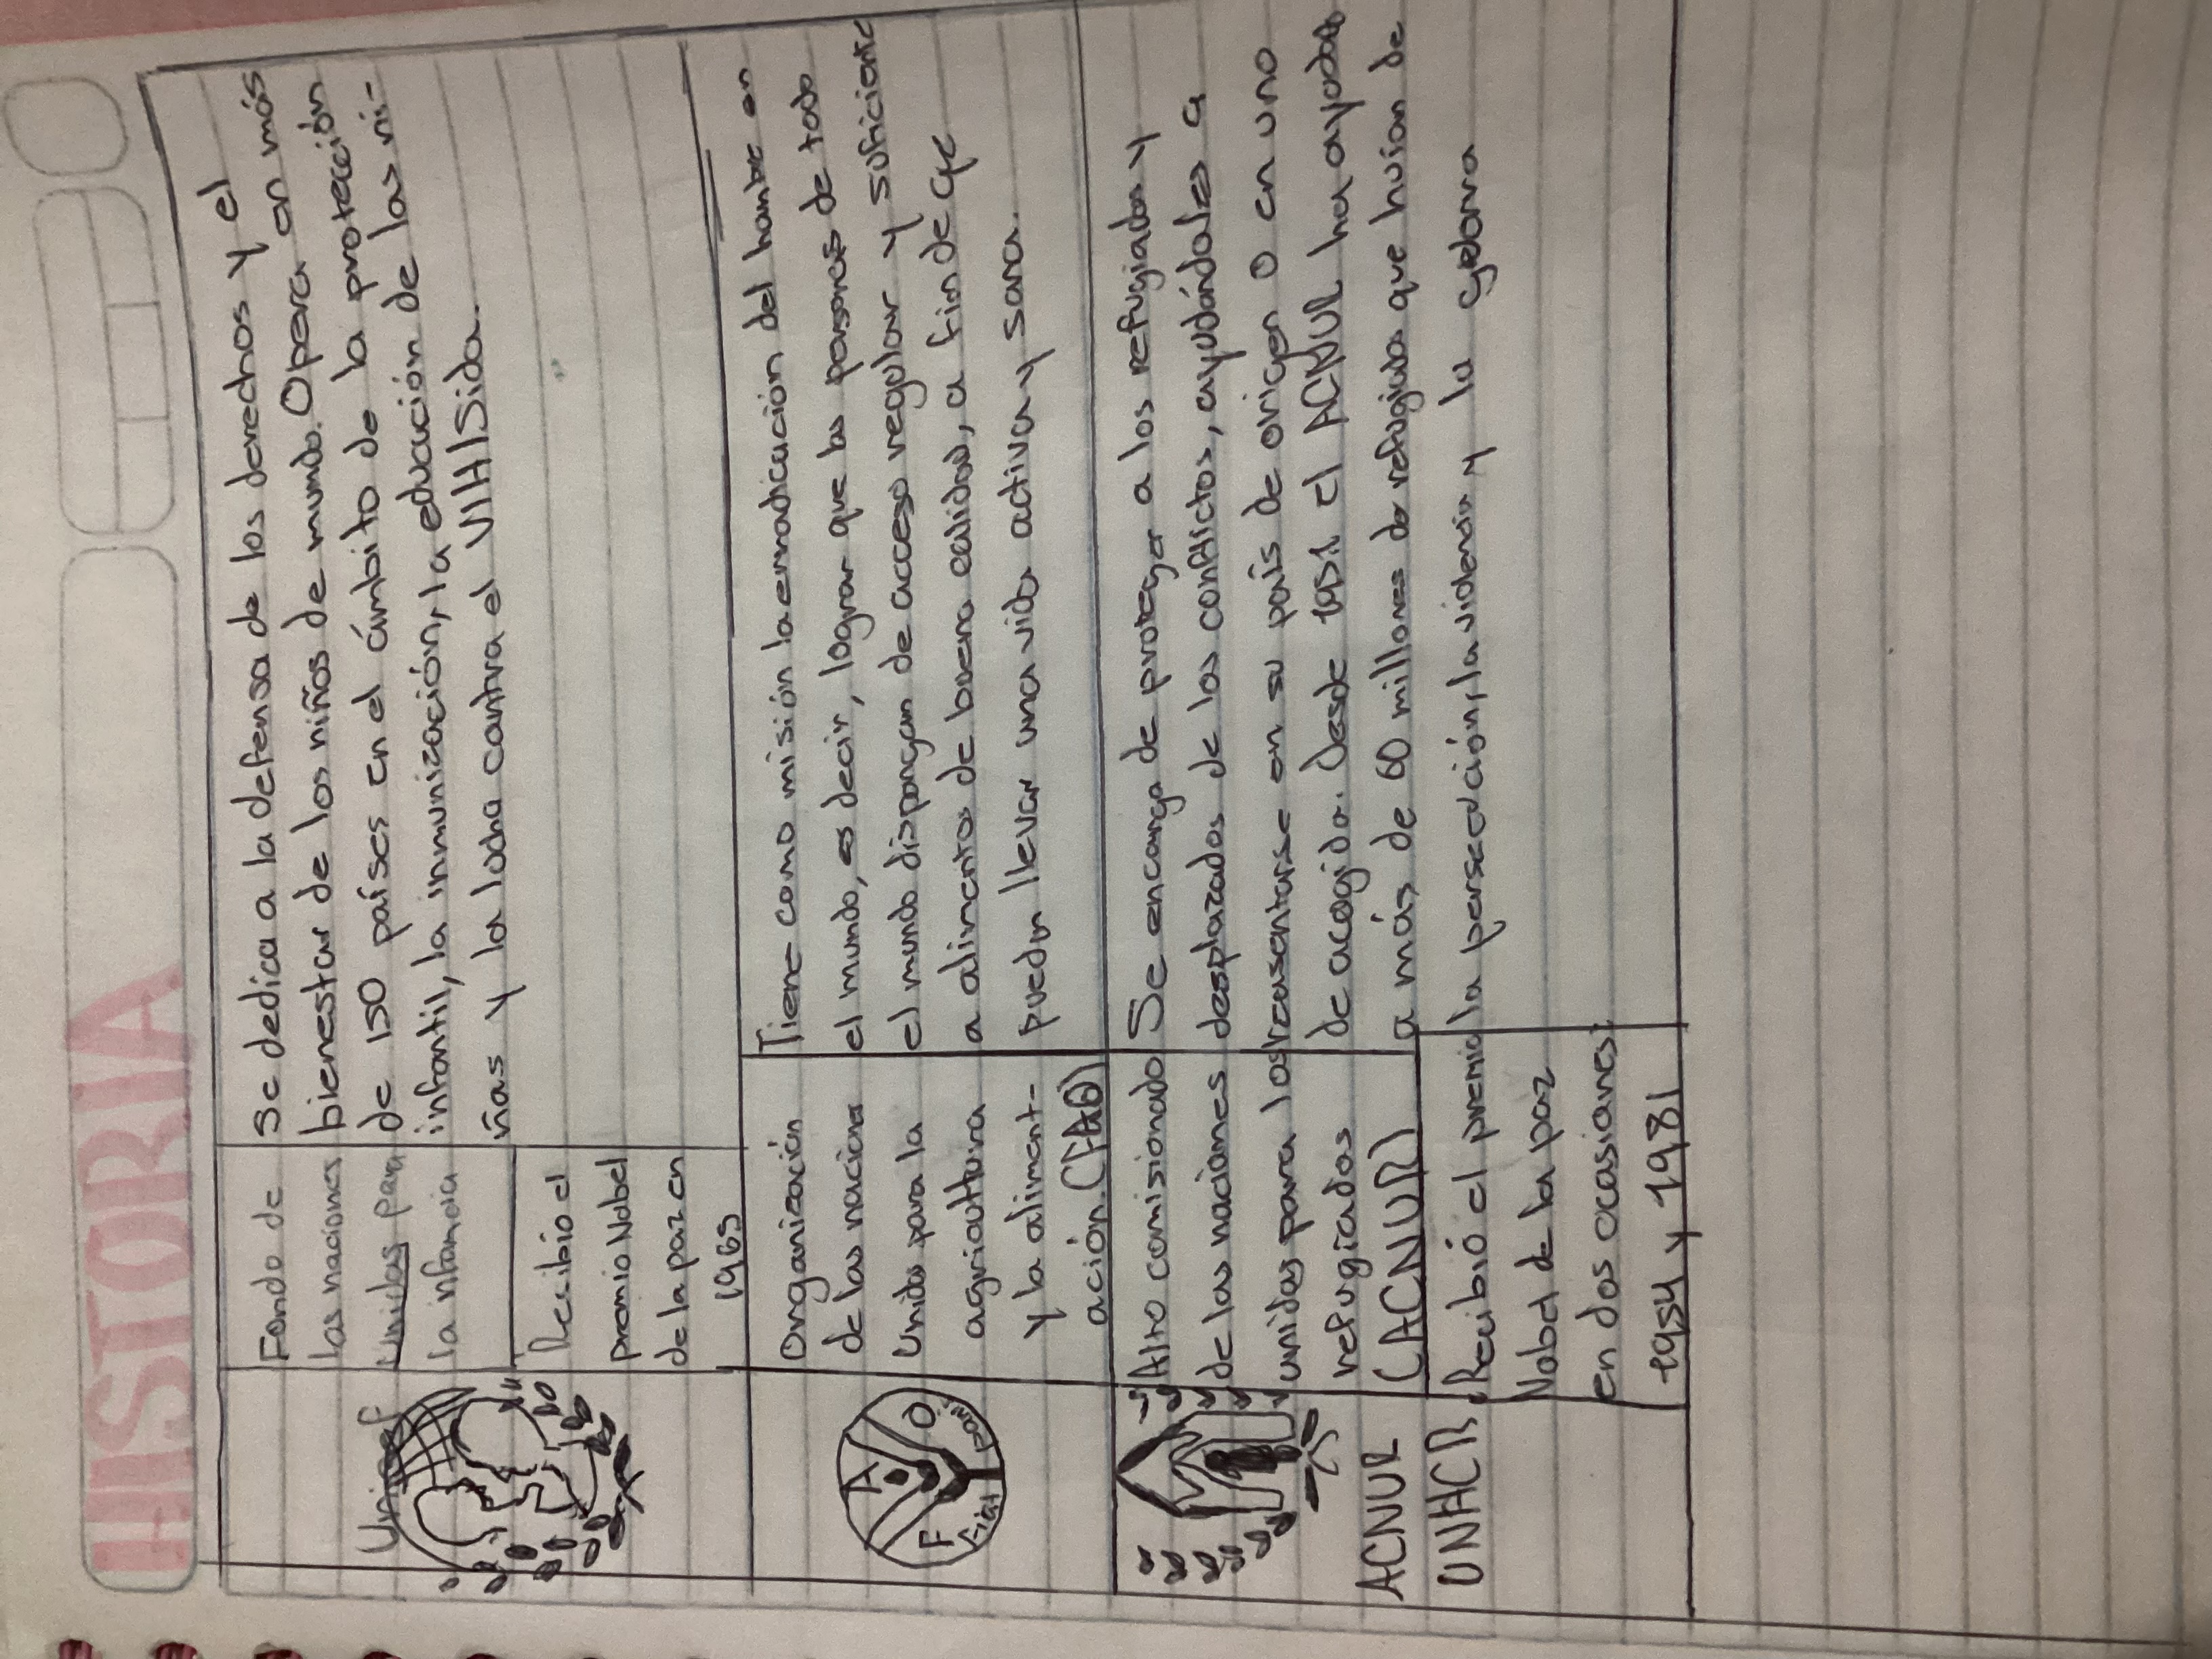 HISTORIA
Unicef
Fondo de
las naciones
Unidas para
la infancia
Recibio el
premio Nobel
de la paz en
1965
Se dedica a la defensa de los derechos y el
bienestar de los niños de mundo. Opera en más
de 150 países en el ámbito de la protección
infantil, la inmunización, la educación de las ni-
ñas y la lucha contra el VIH/Sida.
F A O
fiat panis
Organización
de las naciones
Unidas para la
agricultura
y la aliment-
ación. (FAO)
Tiene como misión la erradicación del hambre en
el mundo, es decir, lograr que las personas de todo
el mundo dispongan de acceso regular y suficiente
a alimentos de buena calidad, a fin de qe
puedan llevar una vida activa y sana.
ACNUR
UNHCR
Alto comisionado
de las naciones
unidas para los
refugiados
(ACNUR)
Recibió el premio
Nobel de la paz
en dos ocasiones:
1954 y 1981
Se encarga de proteger a los refugiados y
desplazados de los conflictos, ayudándoles a
reasentarse en su país de origen o en uno
de acogida. Desde 1951 el ACNUR ha ayudado
a más de 60 millones de refugiados que huían de
la persecución, la violencia y la guerra